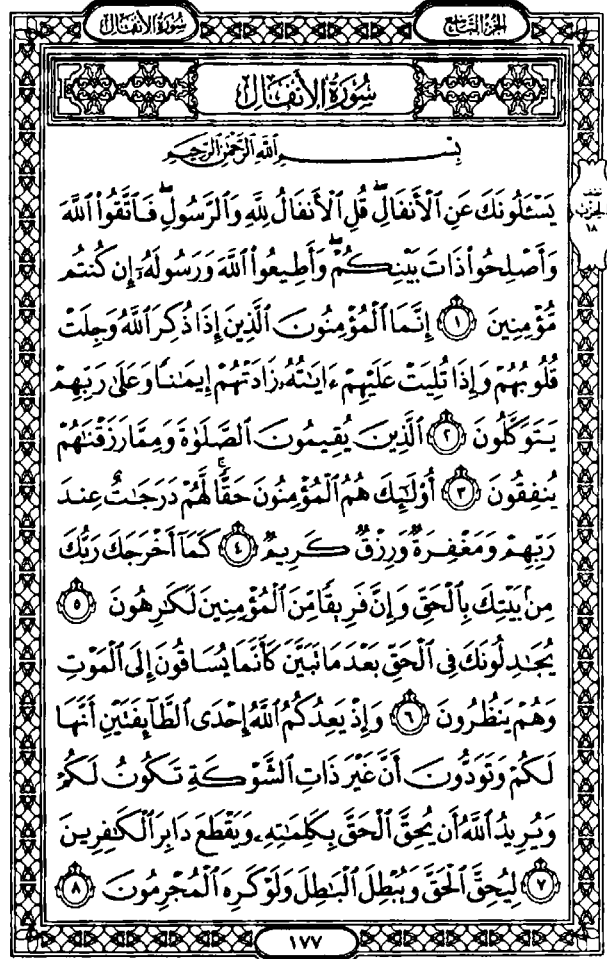 سُورَةُ الأَنفَالِ
الجُزءُ التَّاسِع
سُورَةُ الأَنفَالِ
بِسْمِ اللَّهِ الرَّحْمَٰنِ الرَّحِيمِ
نصف
الحزب
١٨
يَسْـَٔلُونَكَ عَنِ ٱلْأَنفَالِ ۖ قُلِ ٱلْأَنفَالُ لِلَّهِ وَٱلرَّسُولِ ۖ فَٱتَّقُوا۟ ٱللَّهَ
وَأَصْلِحُوا۟ ذَاتَ بَيْنِكُمْ ۖ وَأَطِيعُوا۟ ٱللَّهَ وَرَسُولَهُۥٓ إِن كُنتُم
مُّؤْمِنِينَ ١ إِنَّمَا ٱلْمُؤْمِنُونَ ٱلَّذِينَ إِذَا ذُكِرَ ٱللَّهُ وَجِلَتْ
قُلُوبُهُمْ وَإِذَا تُلِيَتْ عَلَيْهِمْ ءَايَٰتُهُۥ زَادَتْهُمْ إِيمَٰنًا وَعَلَىٰ رَبِّهِمْ
يَتَوَكَّلُونَ ٢ ٱلَّذِينَ يُقِيمُونَ ٱلصَّلَوٰةَ وَمِمَّا رَزَقْنَٰهُمْ
يُنفِقُونَ ٣ أُو۟لَٰٓئِكَ هُمُ ٱلْمُؤْمِنُونَ حَقًّا ۚ لَّهُمْ دَرَجَٰتٌ عِندَ
رَبِّهِمْ وَمَغْفِرَةٌ وَرِزْقٌ كَرِيمٌ ٤ كَمَآ أَخْرَجَكَ رَبُّكَ
مِنۢ بَيْتِكَ بِٱلْحَقِّ وَإِنَّ فَرِيقًا مِّنَ ٱلْمُؤْمِنِينَ لَكَٰرِهُونَ ٥
يُجَٰدِلُونَكَ فِى ٱلْحَقِّ بَعْدَ مَا تَبَيَّنَ كَأَنَّمَا يُسَاقُونَ إِلَى ٱلْمَوْتِ
وَهُمْ يَنظُرُونَ ٦ وَإِذْ يَعِدُكُمُ ٱللَّهُ إِحْدَى ٱلطَّآئِفَتَيْنِ أَنَّهَا
لَكُمْ وَتَوَدُّونَ أَنَّ غَيْرَ ذَاتِ ٱلشَّوْكَةِ تَكُونُ لَكُمْ
وَيُرِيدُ ٱللَّهُ أَن يُحِقَّ ٱلْحَقَّ بِكَلِمَٰتِهِۦ وَيَقْطَعَ دَابِرَ ٱلْكَٰفِرِينَ
٧ لِيُحِقَّ ٱلْحَقَّ وَيُبْطِلَ ٱلْبَٰطِلَ وَلَوْ كَرِهَ ٱلْمُجْرِمُونَ ٨
١٧٧